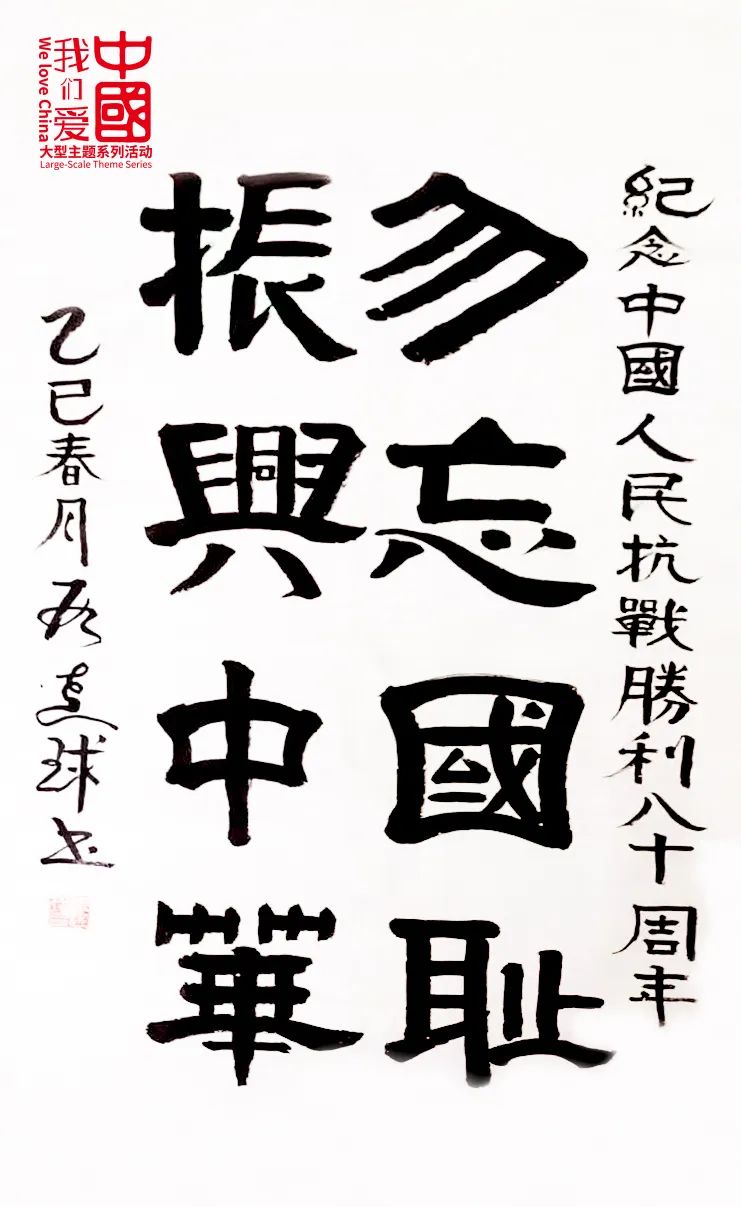 我们爱
中國
We love China
大型主题系列活动
Large-Scale Theme Series
紀念中國人民抗戰勝利八十周年
勿忘國耻
振興中華
乙巳春月球书